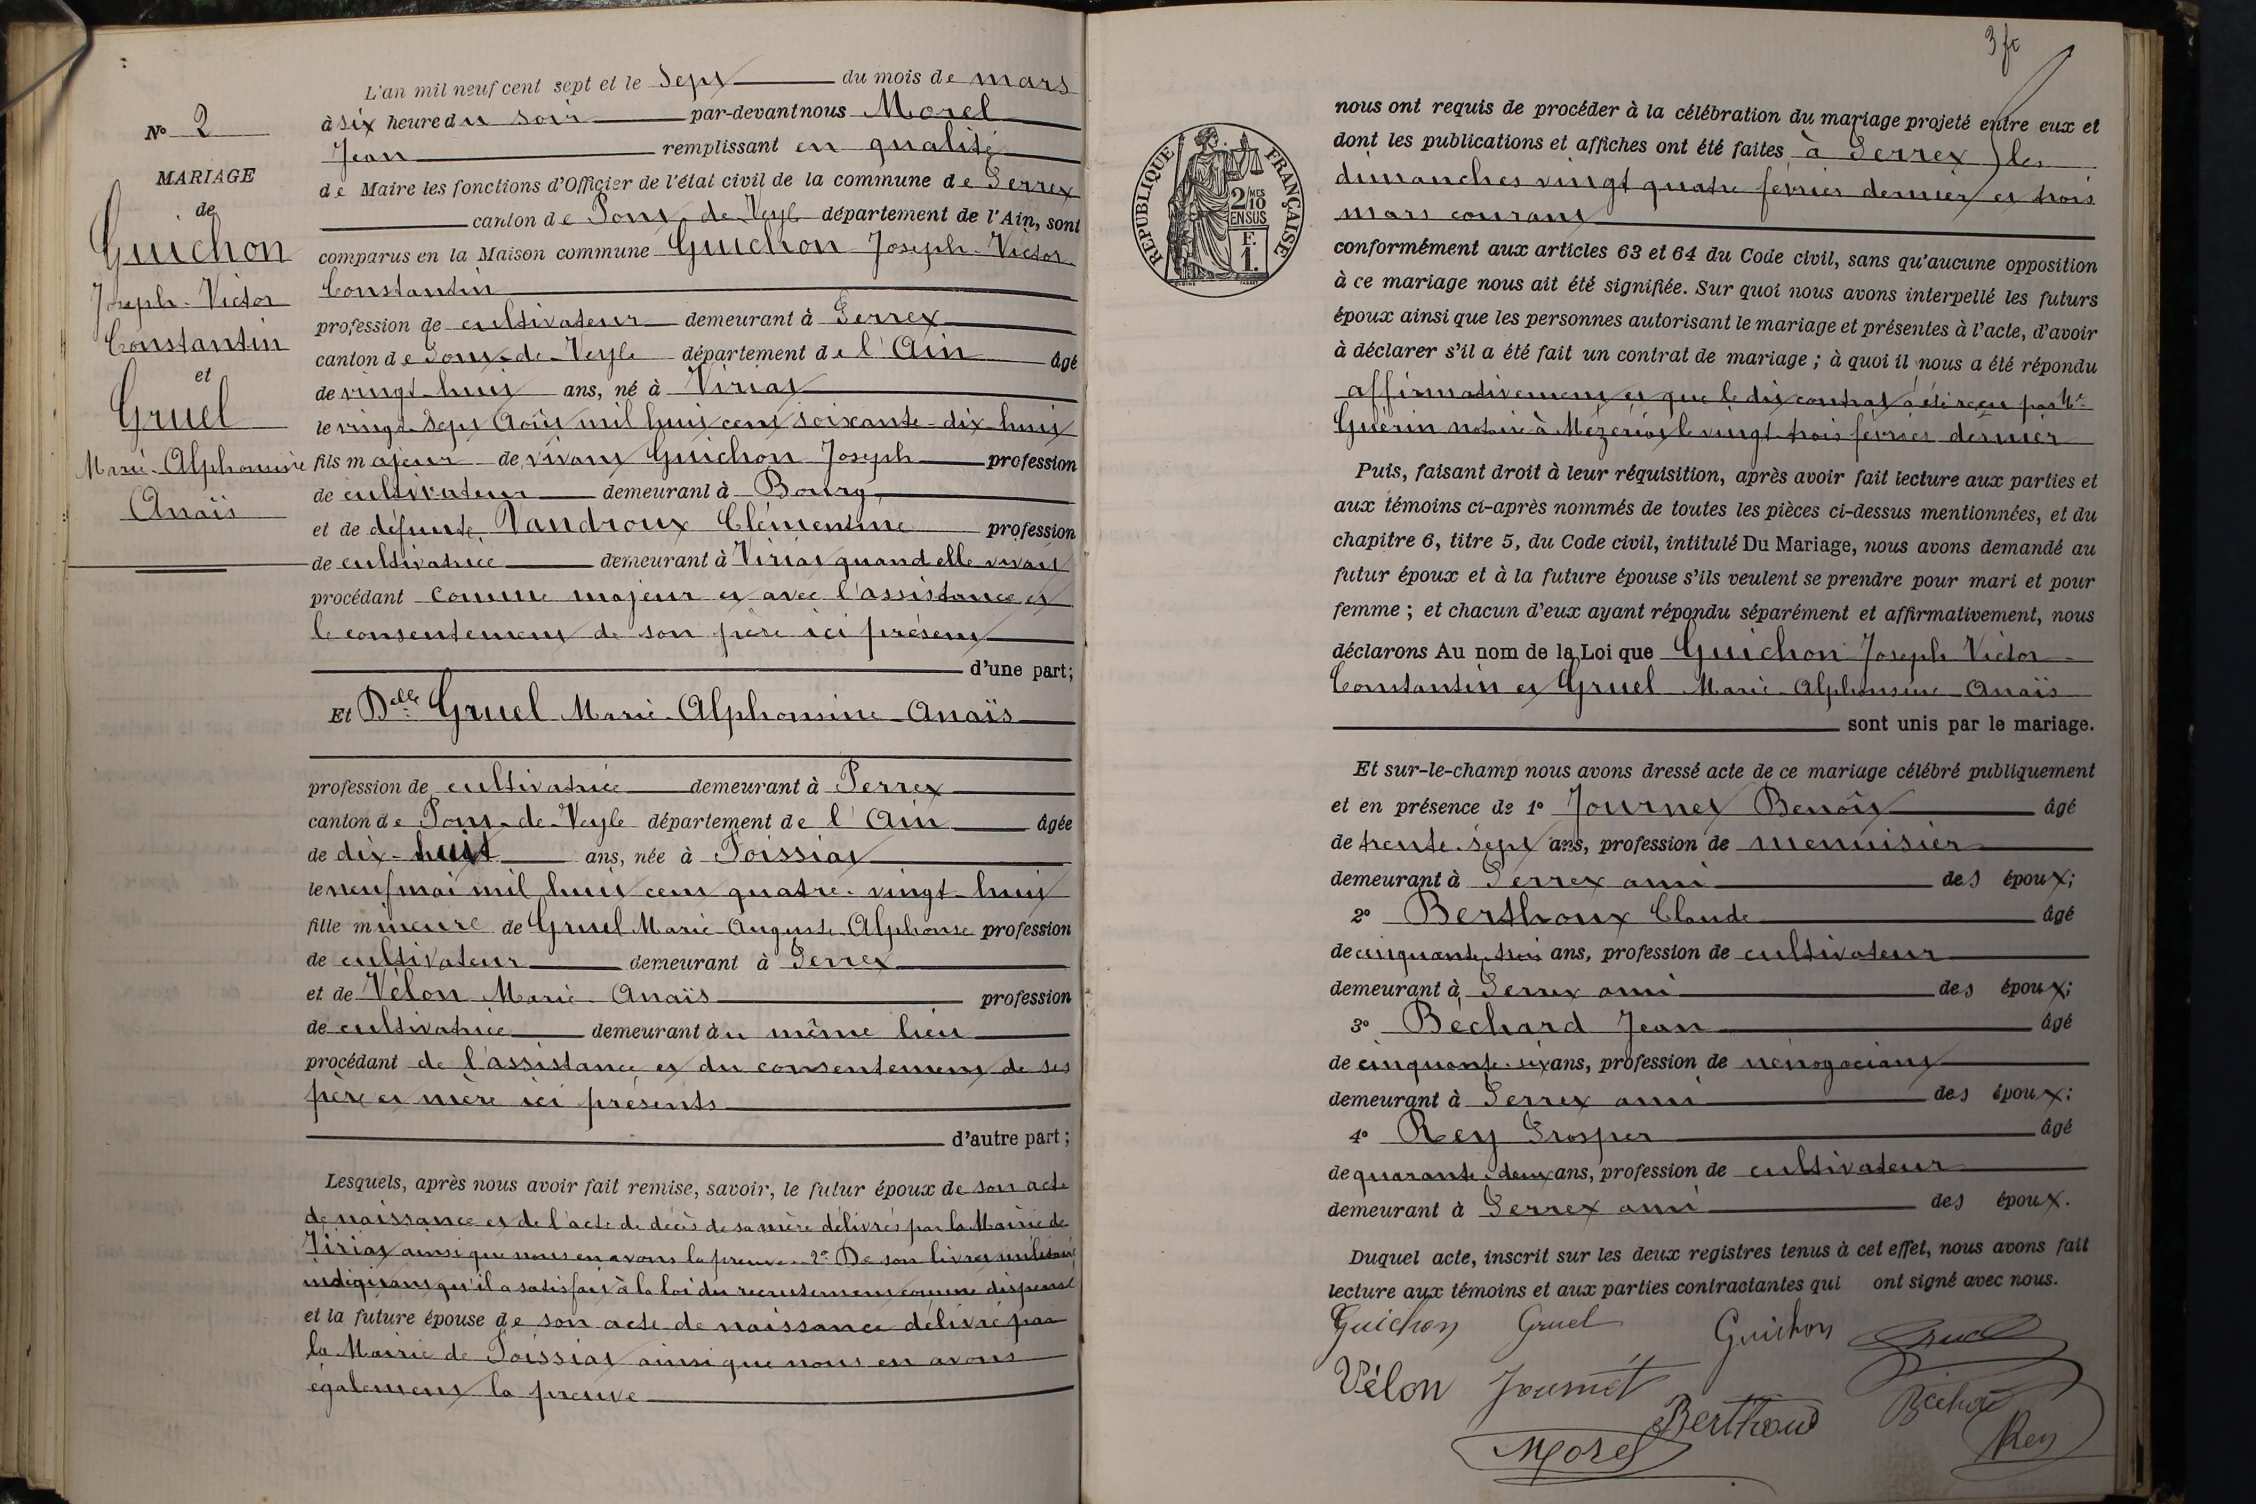 N° 2
MARIAGE
de
Guichon
Joseph-Victor
Constantin
et
Gruel
Marie-Alphonsine
Anaïs
L'an mil neuf cent sept et le sept du mois de mars
à six heure du soir par-devant nous Morel
Jean remplissant en qualité
de Maire les fonctions d'Officier de l'état civil de la commune de Perrex
canton de Pont-de-Veyle département de l'Ain, sont
comparus en la Maison commune Guichon Joseph-Victor
Constantin
profession de cultivateur demeurant à Perrex
canton de Pont-de-Veyle département de l'Ain âgé
de vingt-huit ans, né à Viriat
le vingt-sept Août mil huit cent soixante-dix-huit
fils majeur de vivant Guichon Joseph profession
de cultivateur demeurant à Bourg
et de défunte Vandroux Clémentine profession
de cultivatrice demeurant à Viriat quand elle vivait
procédant comme majeur et avec l'assistance et
le consentement de son père ici présent
d'une part;
Et Delle Gruel Marie-Alphonsine-Anaïs
profession de cultivatrice demeurant à Perrex
canton de Pont-de-Veyle département de l'Ain âgée
de dix-huit ans, née à Foissiat
le neuf mai mil huit cent quatre-vingt-huit
fille mineure de Gruel Marie-Auguste-Alphonse profession
de cultivateur demeurant à Perrex
et de Vélon Marie-Anaïs profession
de cultivatrice demeurant au même lieu
procédant de l'assistance et du consentement de ses
père et mère ici présents
d'autre part;
Lesquels, après nous avoir fait remise, savoir, le futur époux de son acte
de naissance et de l'acte de décès de sa mère délivrés par la Mairie de
Viriat ainsi que nous en avons la preuve. 2° De son livret militaire
indiquant qu'il a satisfait à la loi du recrutement comme dispensé
et la future épouse de son acte de naissance délivré par
la Mairie de Foissiat ainsi que nous en avons
également la preuve
RÉPUBLIQUE FRANÇAISE
2/10 MES
EN SUS
F.
1.
nous ont requis de procéder à la célébration du mariage projeté entre eux et
dont les publications et affiches ont été faites à Perrex les
dimanches vingt quatre février dernier et trois
mars courant
conformément aux articles 63 et 64 du Code civil, sans qu'aucune opposition
à ce mariage nous ait été signifiée. Sur quoi nous avons interpellé les futurs
époux ainsi que les personnes autorisant le mariage et présentes à l'acte, d'avoir
à déclarer s'il a été fait un contrat de mariage ; à quoi il nous a été répondu
affirmativement et que le dit contrat a été reçu par Me
Guérin notaire à Mézériat le vingt-trois février dernier
Puis, faisant droit à leur réquisition, après avoir fait lecture aux parties et
aux témoins ci-après nommés de toutes les pièces ci-dessus mentionnées, et du
chapitre 6, titre 5, du Code civil, intitulé Du Mariage, nous avons demandé au
futur époux et à la future épouse s'ils veulent se prendre pour mari et pour
femme ; et chacun d'eux ayant répondu séparément et affirmativement, nous
déclarons Au nom de la Loi que Guichon Joseph Victor
Constantin et Gruel Marie-Alphonsine-Anaïs
sont unis par le mariage.
Et sur-le-champ nous avons dressé acte de ce mariage célébré publiquement
et en présence de 1° Journet Benoît âgé
de trente-sept ans, profession de menuisier
demeurant à Perrex ami des époux;
2° Berthoux Claude âgé
de cinquante-trois ans, profession de cultivateur
demeurant à Perrex ami des époux;
3° Béchard Jean âgé
de cinquante-six ans, profession de nénogociant
demeurant à Perrex ami des époux;
4° Rey Prosper âgé
de quarante-deux ans, profession de cultivateur
demeurant à Perrex ami des époux.
Duquel acte, inscrit sur les deux registres tenus à cet effet, nous avons fait
lecture aux témoins et aux parties contractantes qui ont signé avec nous.
Guichon Gruel Guichon Gruel
Vélon Journet Berthoud Rey
Morel